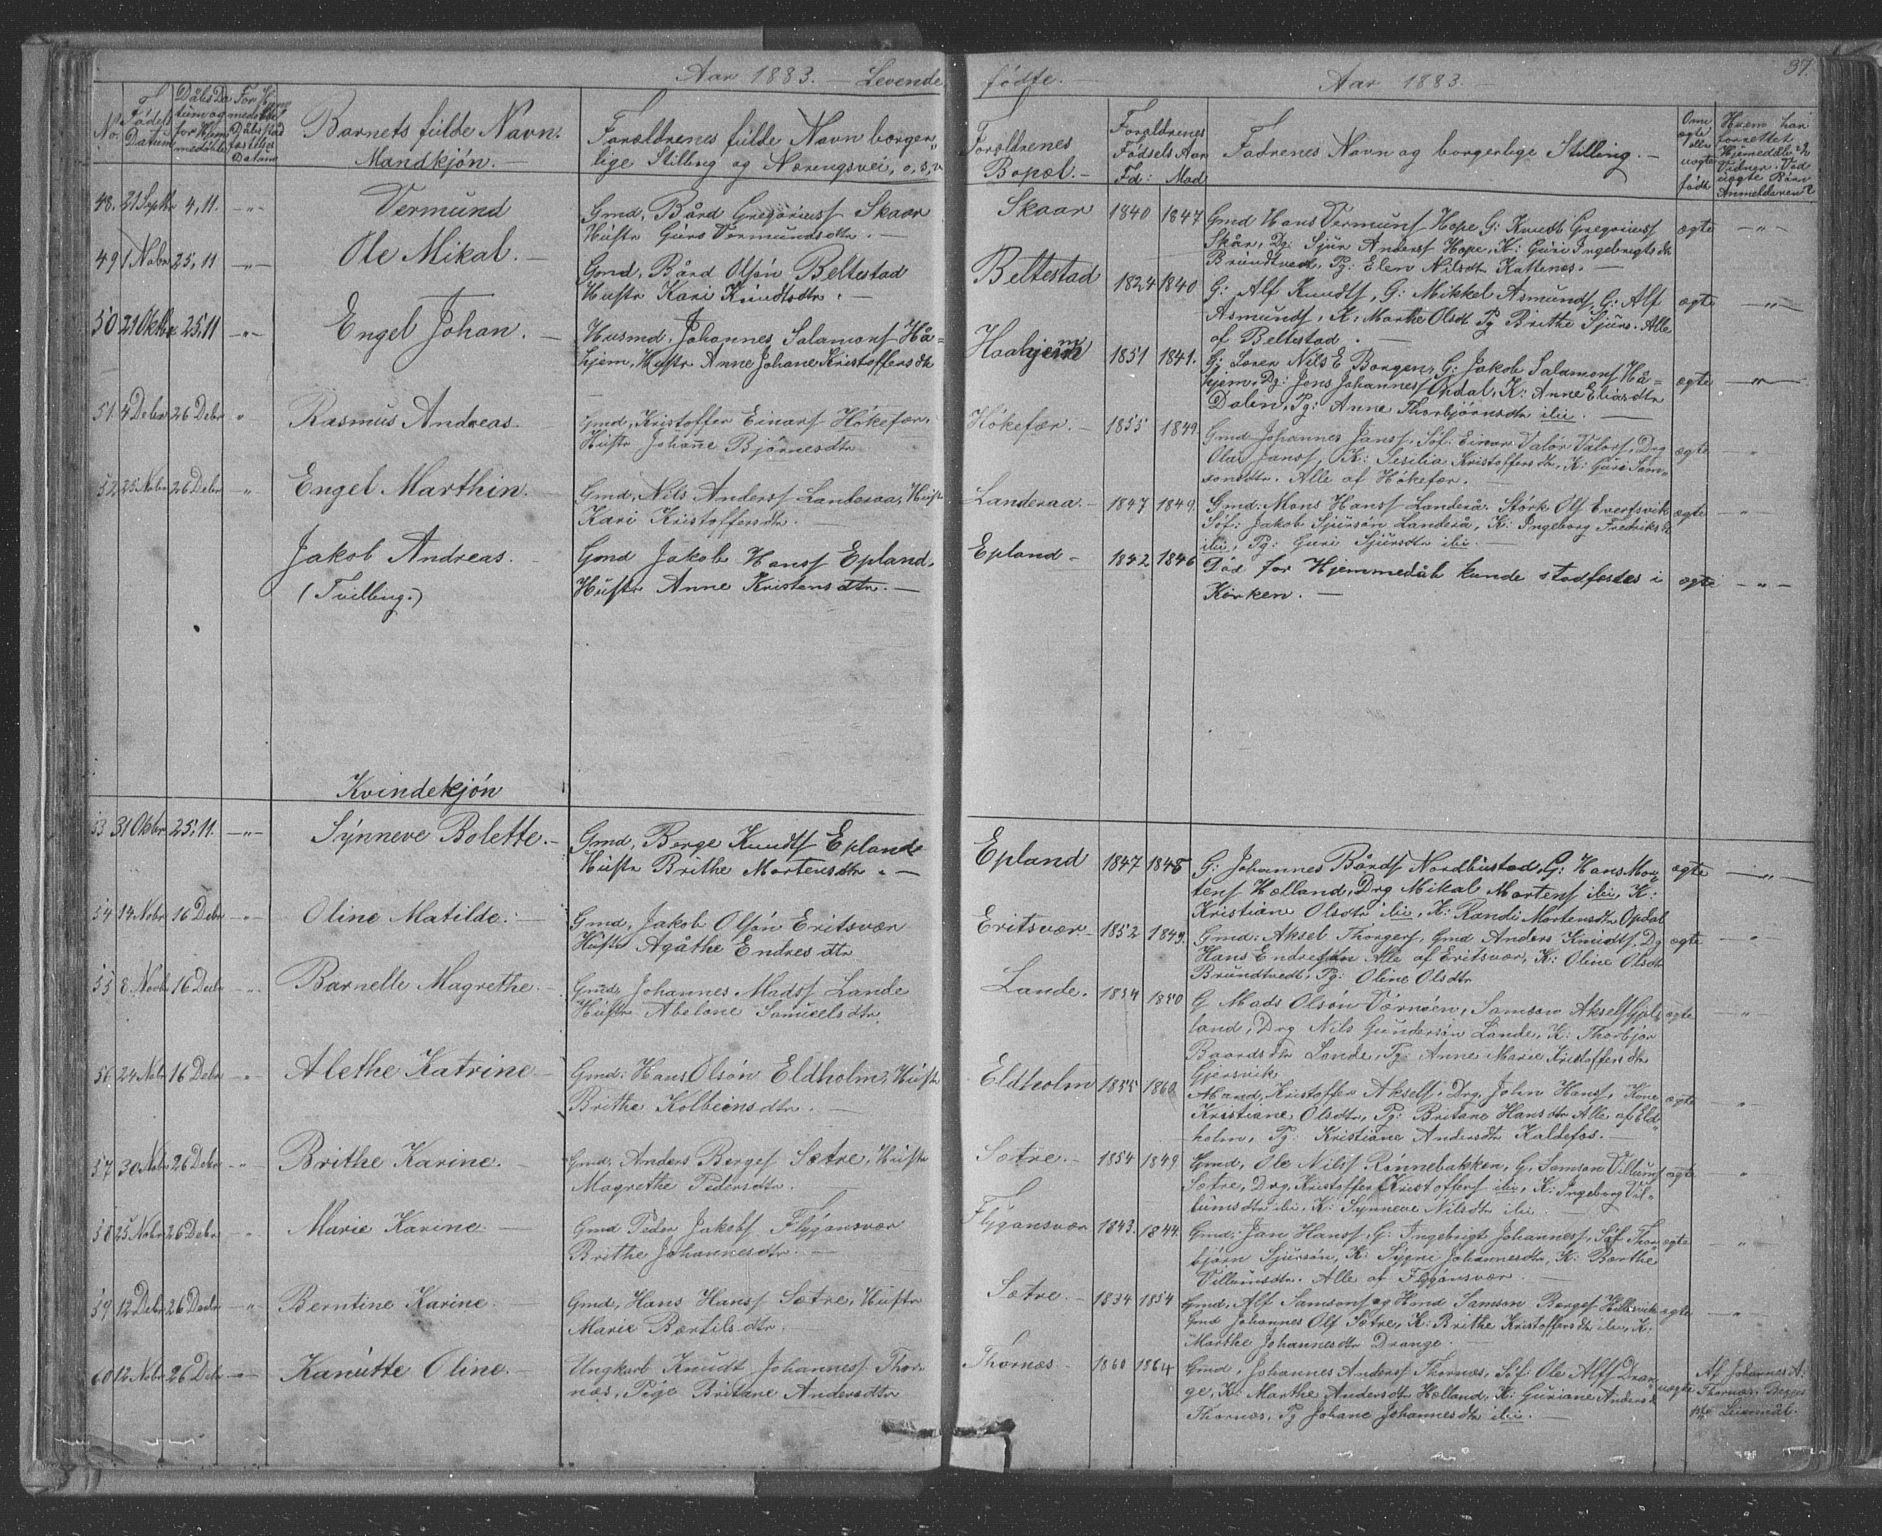 Aar 1883. — Levende fødte. — Aar 1883. —
37.
No. Fødsels Datum
Barnets fulde Navn.
Mandkjøn. —
Forældrenes fulde Navn borger-
lige Stilling og Næringsvei, o, s, v
Forældrenes Bopæl. —
Forældrenes Fødsels Aar
Fd: Mod
Fadrenes Navn og borgerlige Stilling. —
48. 21 Septbr 4, 11. —„— Vermund
Gmd, Bård Gregoriusſ Skaar
Hustr Guro Vermundsdtr. —
Skaar 1840 1847
Gmd Hans Vermunſ Hope G: Knudt Gregoriusſ
Skår, Dg: Sjur Andersſ Hope, K: Guri Ingebrigtsdtr
Brundtved, Pg: Elen Nilsdtr Kattenes. —
ægte —„—
49 1 Nobr 25, 11 —„— Ole Mikal. —
Gmd, Bård Olsón Beltestad
Hustr Kari Knudtsdtr. —
Beltestad 1824 1840
G: Alf Knudtſ, G: Mikkel Asmundſ, G: Alf
Asmundſ, K, Marthe Olsdt Pg Brithe Sjurs. Alle
af Beltestad. —
ægte —„—
50 21 Oktbr 25.11 —„— Engel Johan. —
Husmd, Johannes Salamonſ Hå-
hjem, Hustr Anne Johane Kristoffersdtr
Haahjem 1851 1841.
G: Loren Nils E Bongen, G: Jakob Salamonſ Hå-
hjem, Dg: Jons Johannesſ Opdal, K: Anne Eliasdtr
Dalen, Pg: Anne Thorbjörnsdtr ibi. —
ægte —„—
51 4 Debr 26 Debr „ Rasmus Andreas. —
Gmd, Kristoffer Einarſ Hökefær,
Hustr Johanne Bjórnesdtr
Hókefær. — 1855 1849
Gmd Johannes Jansſ, Söf: Einar Valór Valorſ, Drg
Olai Jansſ, K: Sesilia Kristoffersdtr, K: Guri Sam-
sonsdtr. Alle af Hókefær. —
ægte „
52 25 Nobr 26 Debr „ Engel Marthin. —
Gmd, Nils Andersſ Landeraa, Hustr
Kari Kristoffersdtr.
Landeraa. — 1847 1849
Gmd. Mons Hansſ Landerå. Stórk Olſ Evertsvik
Söf: Jakob Sjursón Landerå, K: Ingeborg Fredriksdtr
ibi, Pg: Guri Sjursdtr ibi. —
ægte „
Jakob Andreas. —
(Tvilling.)
Gmd Jakob Hansſ Epland,
Hustr Anne Kristensdtr. —
Epland — 1842 1846
Död før Hjemmedåb kunde stadfæstes i
Kirken. —
ægte —„—
Kvindekjón
53 31 Okbr 25.11. —„— Synneve Bolette. —
Gmd, Berge Knudtſ Epland
Hustr Brithe Mortensdtr. —
Epland 1847 1848
G: Johannes Bårdſ Nordbustad, G: Hans Mor-
tenſ Hælland, Drg Mikal Mortenſ ibi, K:
Kristiane Olsdtr ibi, K: Randi Mortensdtr Opdal
ægte —„—
54 14 Nobr 16 Debr „ Oline Matilde. —
Gmd, Jakob Olsón Eritsvær
Hustr Agåthe Endresdtr
Eritsvær. 1852 1849.
Gmd: Aksel Thorgerſ, Gmd Anders Knudtſ, Dg
Hans Endresön Alle af Eritsvær, K: Oline Olsdtr
Brundtvedt, Pg: Oline Olsdtr
ægte „
55 8 Novbr 16 Debr „ Barnelle Magrethe. —
Gmd, Johannes Madsſ Lande
Hustr Abelone Samuelsdtr.
Lande. 1854 1850
G Mads Olsón Værnöen, Samson Akselſ Gjols-
land, Drg Nils Gundersón Lande, K: Thorbjor
Baardsdtr Lande, Pg: Anne Marie Kristoffersdtr
Gjersvik
ægte „
56 24 Nobr 16 Debr „ Alethe Katrine —
Gmd: Hans Olsón Eldholm, Hustr
Brithe Kolbeinsdtr. —
Eldholm 1855 1860
Mand, Kristoffer Akselſ, Drg. John Hansſ, Kone
Kristiane Olsdtr, Pg: Britane Hansdtr Alle af Eld-
holm, Pg: Kristiane Andersdtr Kaldefos. —
ægte „
57 30 Nobr 26 Debr „ Brithe Karine. —
Gmd, Anders Bergeſ Sætre, Hustr
Magrethe Pedersdtr.
Sætre. — 1854 1849
Gmd, Ole Nilsſ Rönnebakken, G, Samson Villumſ
Sætre, Drg, Kristoffer Kristofferſ ibi, K: Ingeborg Vil-
lumsdtr ibi, K: Synneve Nilsdtr ibi —
ægte „
58 25 Nobr 26 Debr „ Marie Karine. —
Gmd Peder Jakobſ Flygansvær
Brithe Johannesdtr. —
Flygansvær 1843. 1844.
Gmd: Jan Hansſ, G: Ingebrigt Johannesſ, Söf Thor-
bjórn Sjursón, K: Sygni Johannesdtr, K: Barthe
Villumsdtr. Alle af Flygansvær. —
ægte „
59 12 Debr 26 Debr —„ Berntine Karine. —
Gmd, Hans Hansſ Sætre, Hustr
Marie Bærtilsdtr.
Sætre. — 1834 1854
Gmd, Alf Samsonſ og Hmd Samson Bergeſ Hillesvik
Gmd Johannes Olſ Sætre, K: Brithe Kristoffersdtr ibi, K:
Marthe Johannesdtr Drange.
ægte „
60 12 Nobr 26 Debr —„— Kanutte Oline. —
Ungkarl Knudt Johannesſ Thor-
næs, Pige Britane Andersdtr
Thornæs — 1860 1864
Gmd, Johannes Andersſ Thornæs, Söf Ole Alfſ Dran-
ge, K: Marthe Andersdtr Hælland, K: Guriane Andersd
Thornæs, Pg Johane Johannesdtr ibi. —
uægte
Af Johannes A.
Thornæs.